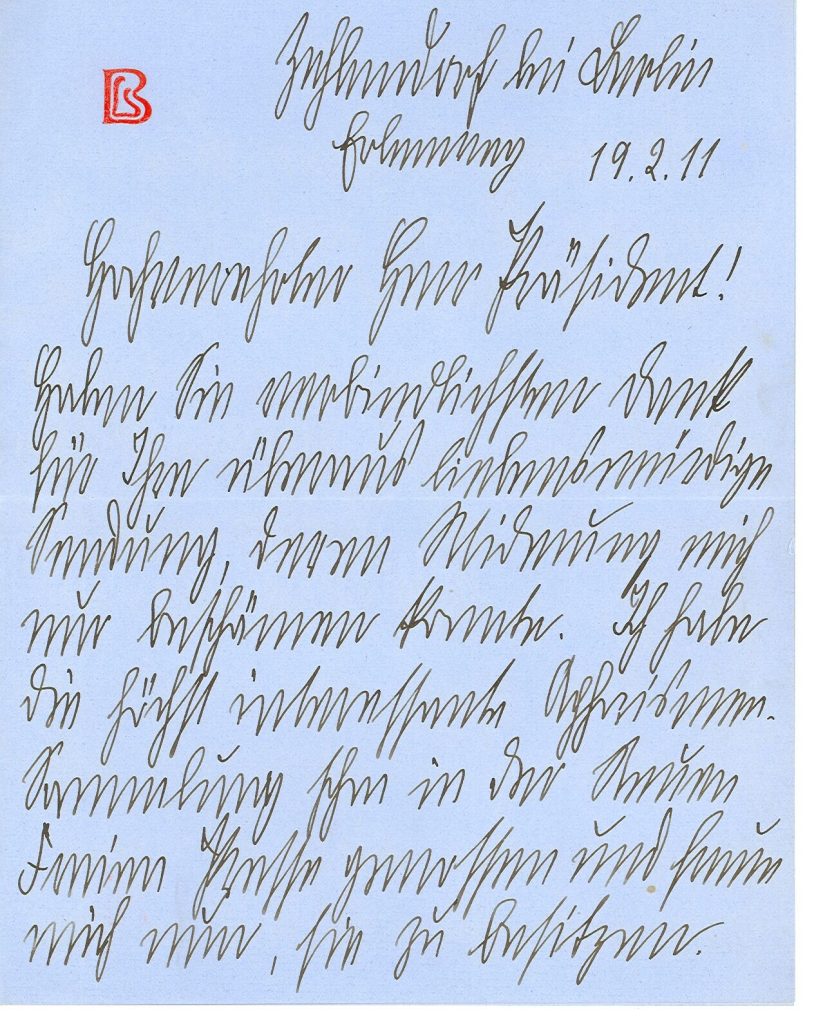 Zehlendorf bei Berlin
Erlenweg 19.2.11
Hochverehrter Herr Präsident!
Haben Sie verbindlichsten Dank
für Ihre überaus liebenswürdige
Sendung, deren Widmung mich
nur beschämen konnte. Ich habe
die höchst interessante Aphorismen-
Sammlung schon in der Neuen
Freien Presse genossen und freue
mich nun, sie zu besitzen.